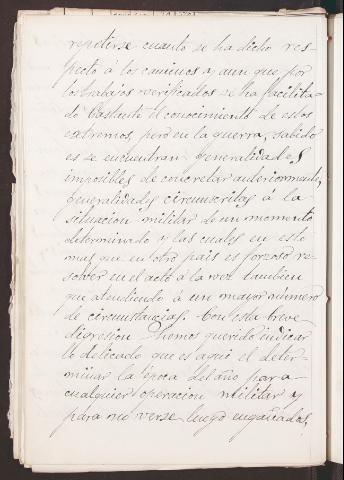 repetirse cuanto se ha dicho res-
pecto á los caminos y aun que por
los trabajos verificados se ha facilita-
do bastante el conocimiento de estos
extremos, pero en la guerra, sabido
es se encuentran generalidades
imposibles de concretar anteriormente,
generalidades circunscritas á la
situacion militar de un momento
determinado y las cuales en este
mas que en otro pais es forzoso re-
solver en el acto á la vez tambien
que atendiendo á un mayor número
de circunstancias. Con esta breve
digresion hemos querido indicar
lo delicado que es aqui el deter-
minar la época del año para
cualquier operacion militar y
para no verse luego engañados,